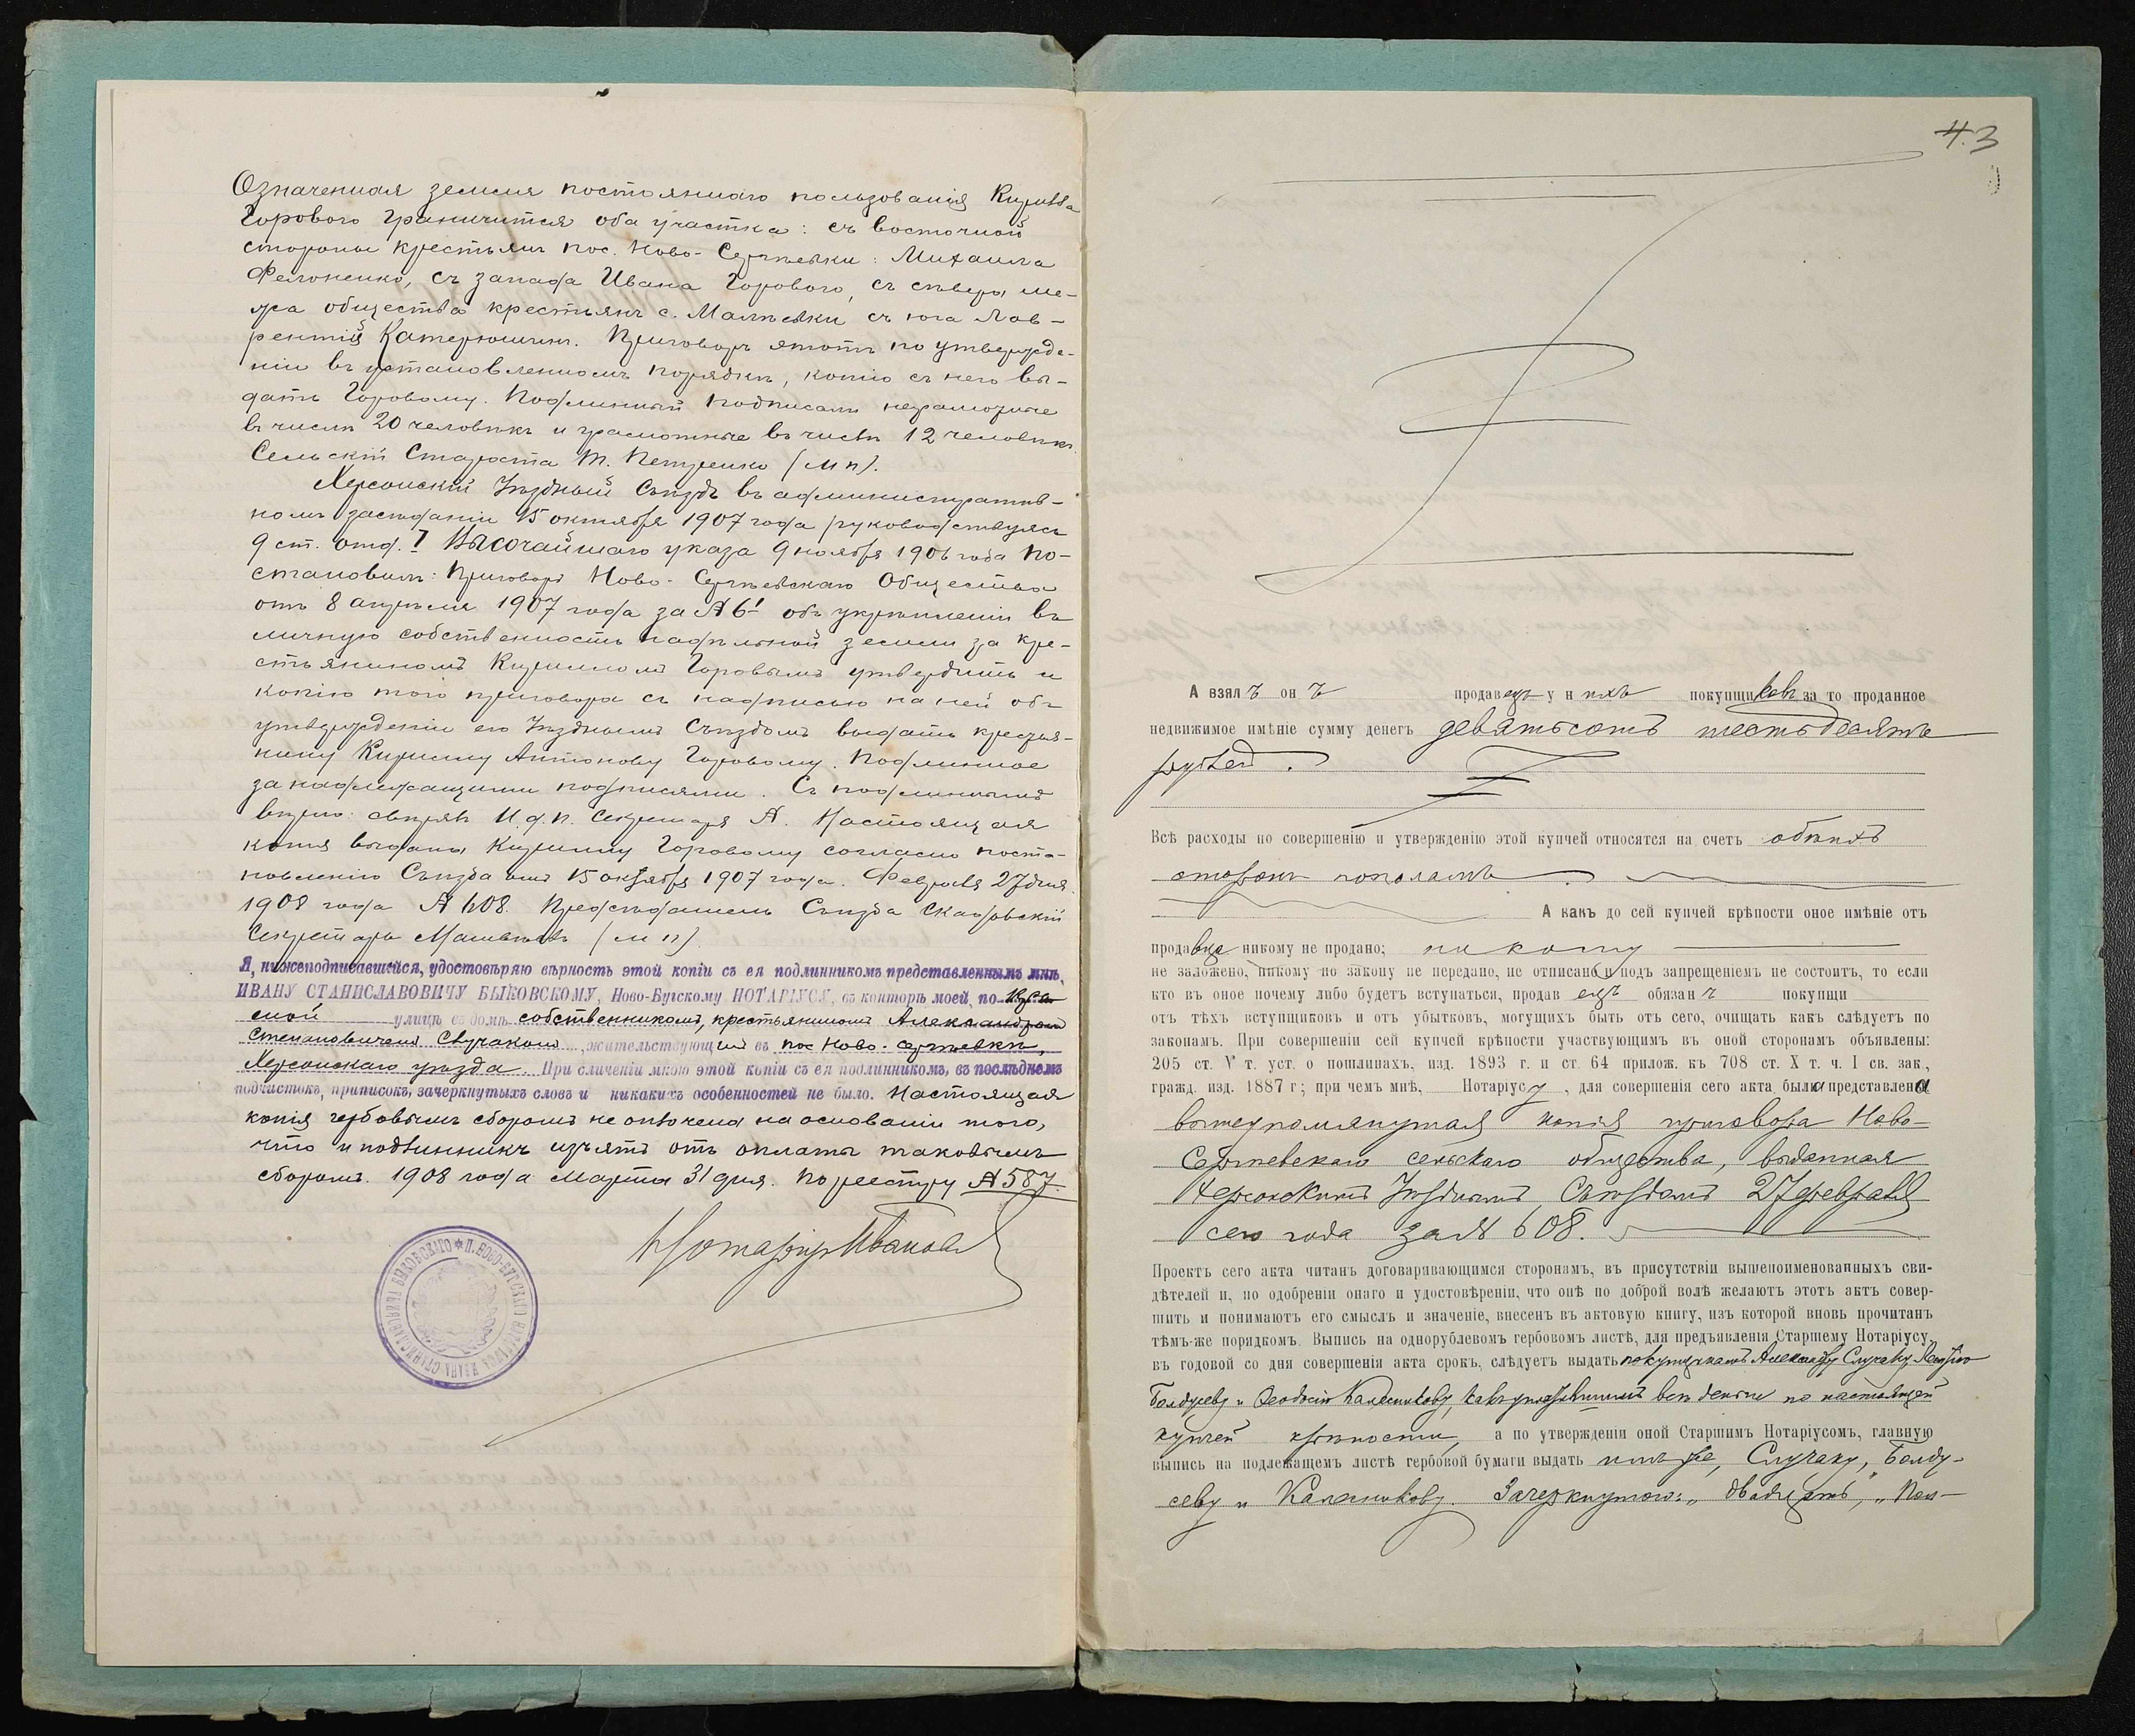 Означенная земля постояннаго пользованія Кирилла
Горового граничится оба участка: съ восточной
стороны крестьян. пос. Ново-Сергѣевки: Михаила
Фелоненко, съ запада Ивана Горового, съ сѣвера ме-
жа общества крестьянъ с. Малѣевки съ юга Лав-
рентій Катерюшинъ. Приговоръ этотъ по утвержде-
ніи въ установленномъ порядкѣ, копію съ него вы-
дать Горовому. Подлинный подписали неграмотные
въ числѣ 20 человѣкъ и грамотные въ числѣ 12 человѣкъ.
Сельскій Староста Т. Петренко (М п).
Херсонскій Уѣздный Съѣздъ въ административ-
номъ засѣданіи 15 октября 1907 года руководствуясь
9 ст. отд. I Высочайшаго указа 9 ноября 1906 года по-
становилъ: Приговоръ Ново-Сергѣевскаго Общества
отъ 8 апрѣля 1907 года за № 61 объ укрѣпленіи въ
личную собственность надѣльной земли за кре-
стьяниномъ Кирилломъ Горовымъ утвердить и
копію того приговора съ надписью на ней объ
утвержденіи его Уѣзднымъ Съѣздомъ выдать крестья-
нину Кириллу Антонову Горовому. Подлинное
за надлежащими подписями. Съ подлиннымъ
вѣрно: свѣрялъ И. д. п. Секретаря А. Настоящая
копія выдана Кириллу Горовому согласно поста-
новленію Съѣзда отъ 15 октября 1907 года. Февраля 27 дня
1908 года № 608. Предсѣдатель Съѣзда Скадовскій
Секретарь (М п)
Я, нижеподписавшійся, удостовѣряю вѣрность этой копіи съ ея подлинникомъ представленнымъ мнѣ,
ИВАНУ СТАНИСЛАВОВИЧУ БЫКОВСКОМУ, Ново-Бугскому НОТАРІУСУ, въ конторѣ моей, по
улицѣ въ домѣ собственникомъ, крестьяниномъ Александромъ
Степановичемъ Случакомъ, жительствующимъ въ пос Ново-Сергѣевкѣ,
Херсонскаго уѣзда При сличеніи мною этой копіи съ ея подлинникомъ, въ послѣднемъ
подчистокъ, приписокъ, зачеркнутыхъ словъ и никакихъ особенностей не было. Настоящая
копія гербовымъ сборомъ не оплочена на основаніи того,
что и подлинникъ изъятъ отъ оплаты таковымъ
сборомъ. 1908 года Марта 31 дня. По реестру № 587.
Нотаріусъ
П. НОВО-БУГСКАГО НОТАРІУСА ИВАНА СТАНИСЛАВОВИЧА БЫКОВСКАГО
43
А взялъ онъ продавецъ у нихъ покупщиковъ за то проданное
недвижимое имѣніе сумму денегъ девятьсотъ шестьдесятъ
рублей.
Всѣ расходы по совершенію и утвержденію этой купчей относятся на счетъ обѣихъ
сторонъ пополамъ.
А какъ до сей купчей крѣпости оное имѣніе отъ
продавца никому не продано; никому
не заложено, никому по закону не передано, не отписано и подъ запрещеніемъ не состоитъ, то если
кто въ оное почему либо будетъ вступаться, продавецъ обязанъ покупщи
отъ тѣхъ вступщиковъ и отъ убытковъ, могущихъ быть отъ сего, очищать какъ слѣдуетъ по
законамъ. При совершеніи сей купчей крѣпости участвующимъ въ оной сторонамъ объявлены:
205 ст. V т. уст. о пошлинахъ, изд. 1893 г. и ст. 64 прилож. къ 708 ст. X т. ч. I св. зак.,
гражд. изд. 1887 г; при чемъ мнѣ, Нотаріусу, для совершенія сего акта была представлена
вышеупомянутая копія приговора Ново-
Сергѣевскаго сельскаго общества, выданная
Херсонскимъ Уѣзднымъ Съѣздомъ 27 февраля
сего года за № 608.
Проектъ сего акта читанъ договаривающимся сторонамъ, въ присутствіи вышепоименованныхъ сви-
дѣтелей и, по одобреніи онаго и удостовѣреніи, что онѣ по доброй волѣ желаютъ этотъ актъ совер-
шить и понимаютъ его смыслъ и значеніе, внесенъ въ актовую книгу, изъ которой вновь прочитанъ
тѣмъ-же порядкомъ. Выпись на однорублевомъ гербовомъ листѣ, для предъявленія Старшему Нотаріусу
въ годовой со дня совершенія акта срокъ, слѣдуетъ выдать покупщикамъ Александру Случаку,
Балдуеву и Ѳеодосію Калесникову, какъ уплатившимъ всѣ деньги по настоящей
купчей крѣпости, а по утвержденіи оной Старшимъ Нотаріусомъ, главную
выпись на подлежащемъ листѣ гербовой бумаги выдать имъ же, Случаку, Балду-
еву и Калесникову. Зачеркнутого: „двадцать", „Пол-